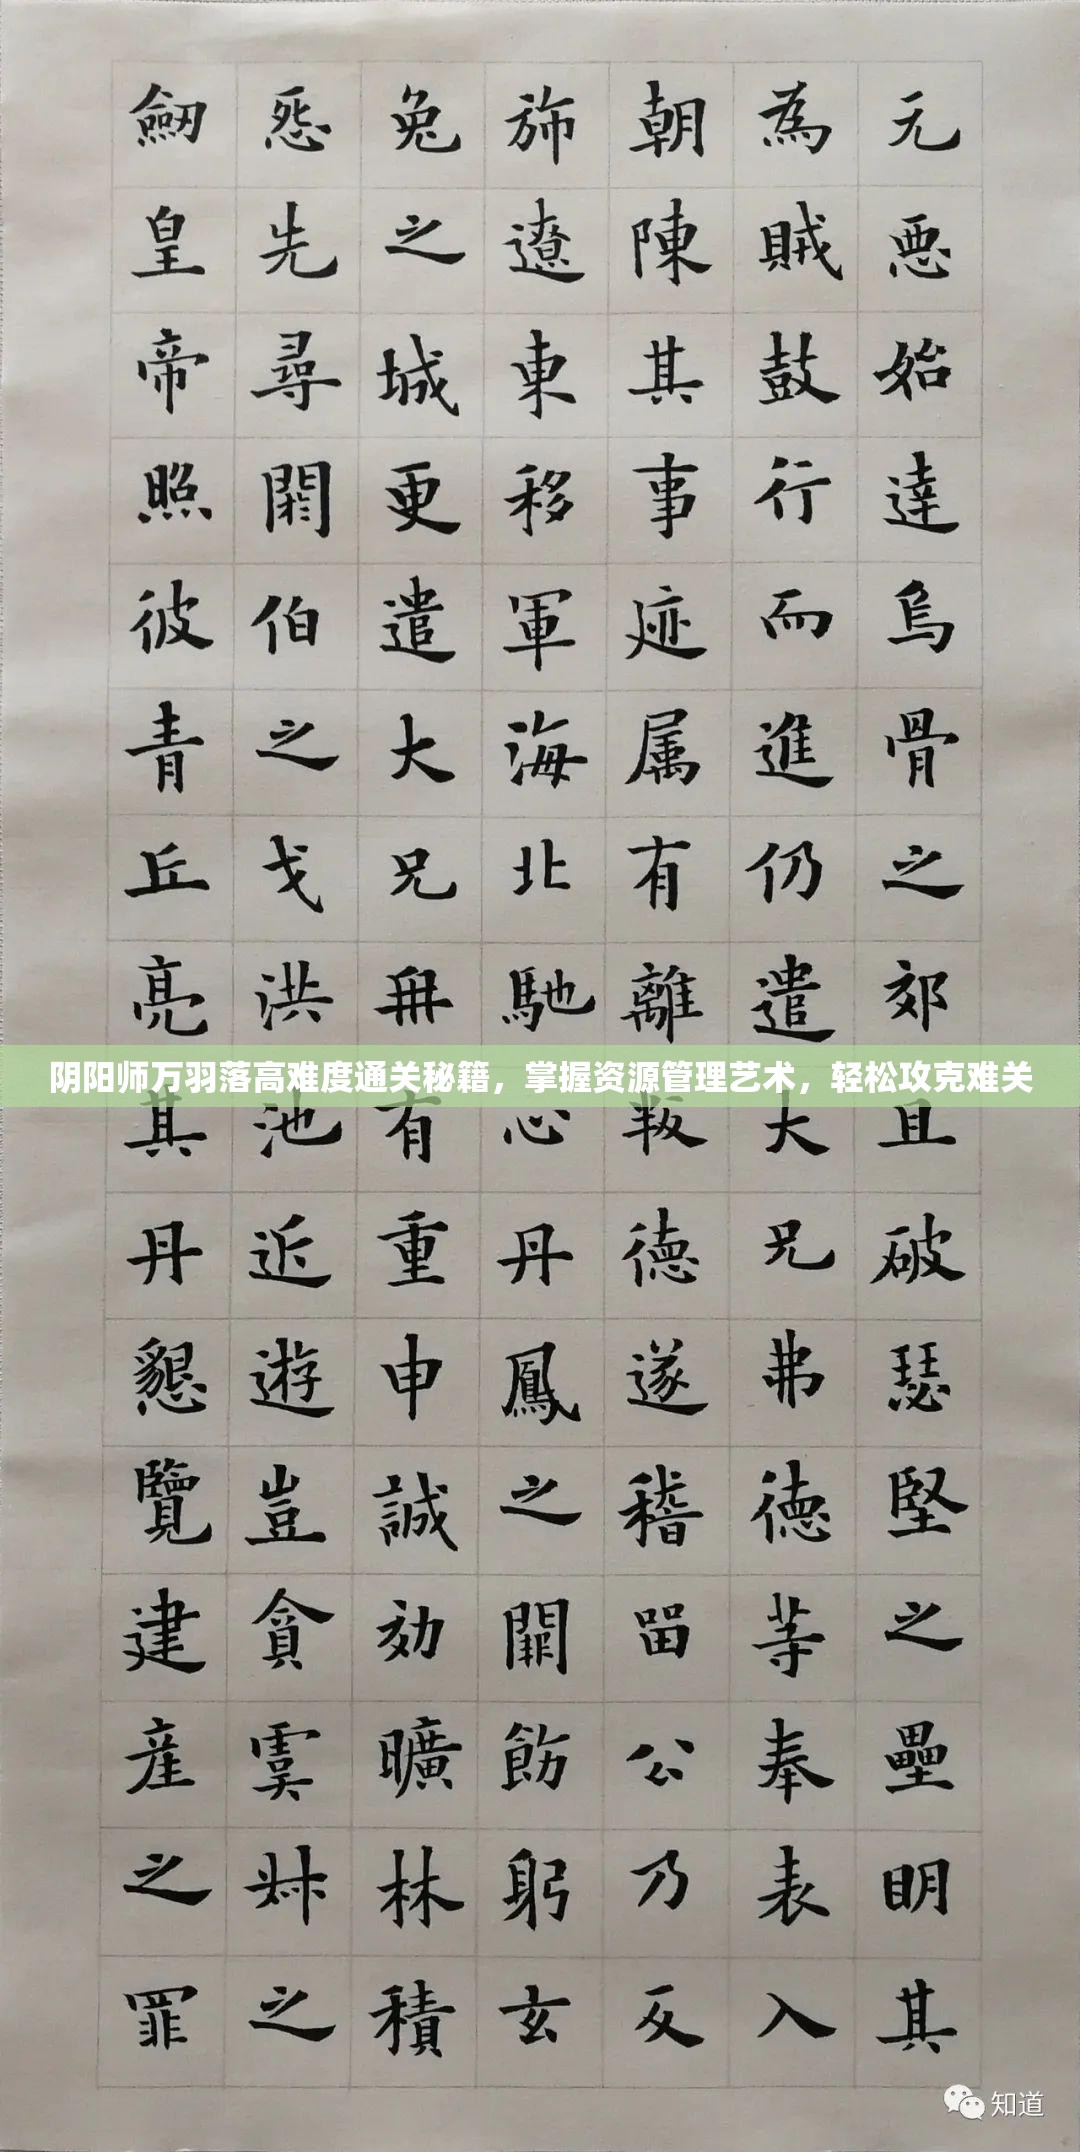 元悪始達烏骨之郊且破瑟堅之壘明其
為賊鼓行而進仍遣大兄弗德等奉表入
朝陳其事迹属有離叛德遂稽畄公乃反
斾遼東移軍海北馳心丹鳳之飭躬玄
兔之城更遣大兄冉有重申誠効曠林積
先尋閼伯之戈洪池近遊豈貪虞之
劒皇帝照彼青丘亮其丹懇覽建産之罪
阴阳师万羽落高难度通关秘籍，掌握资源管理艺术，轻松攻克难关
知道